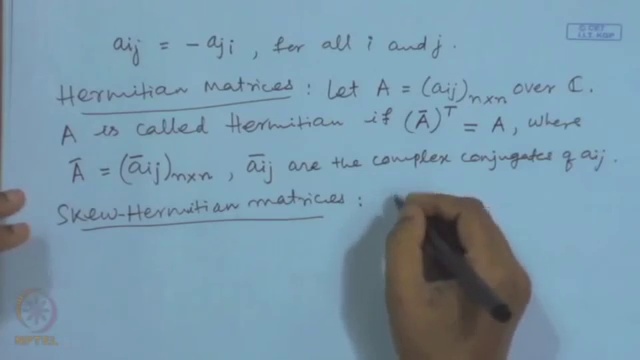 aij = - aji , for all i and j.
Hermitian Matrices : Let A = (aij)n×n over ℂ.
A is called Hermitian if (Ā)ᵀ = A, where
Ā = (āij)n×n , āij are the complex conjugates of aij.
Skew-Hermitian matrices :
© CET
I.I.T. KGP
NPTEL